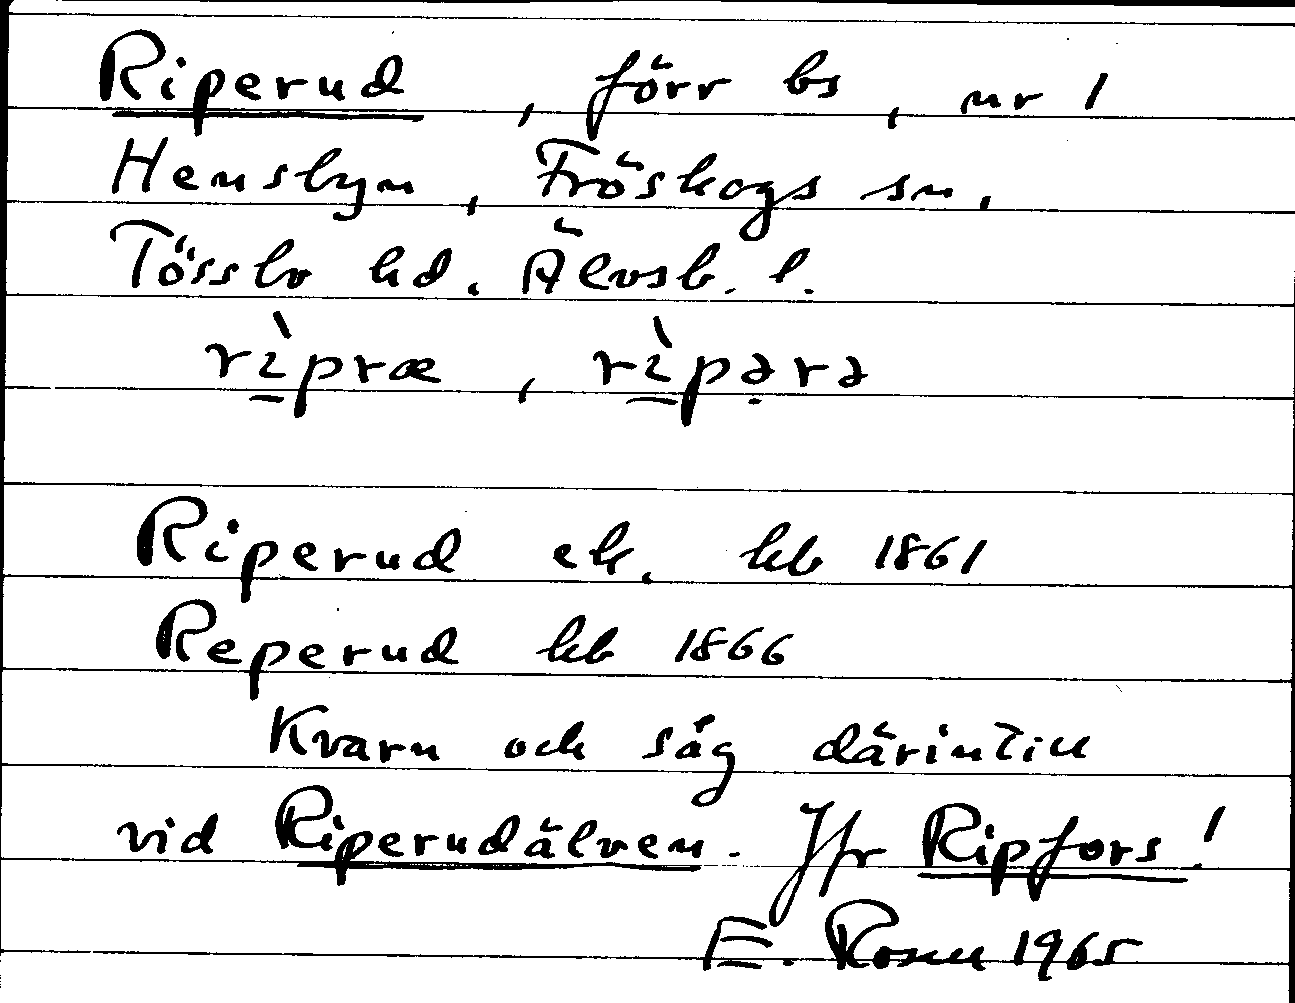 Riperud, förr bs, nr 1
Hensbyn, Fröskogs sn,
Tössbo hd. Älvsb. l.
rı̀præ, rı̀pərə
Riperud ek. kb 1861
Reperud kb 1866
Kvarn och såg därintill
vid Riperudälven. Jfr Ripfors!
E. Rosell 1965